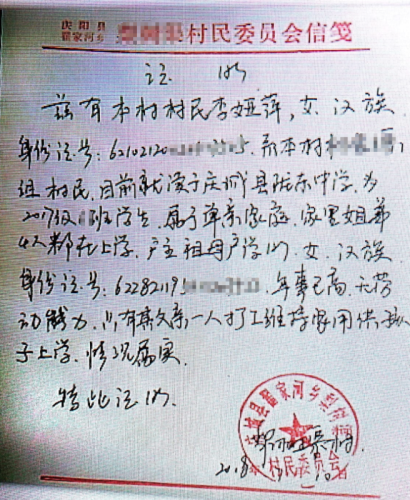 庆阳县
翟家河乡 村民委员会信笺
证 明
兹有本村村民李娅萍,女,汉族
身份证号:62102120 5.系本村
组村民,目前就读于庆城县陇东中学,为
2017级 班学生,属于单亲家庭,家里姐弟
4人都在上学,户主祖母 女,汉族
身份证号:622821195 年事已高,无劳
动能力,只有其父亲一人打工维持家用供孩
子上学,情况属实
特此证明.
庆城县翟家河乡
村民委员会
2018年